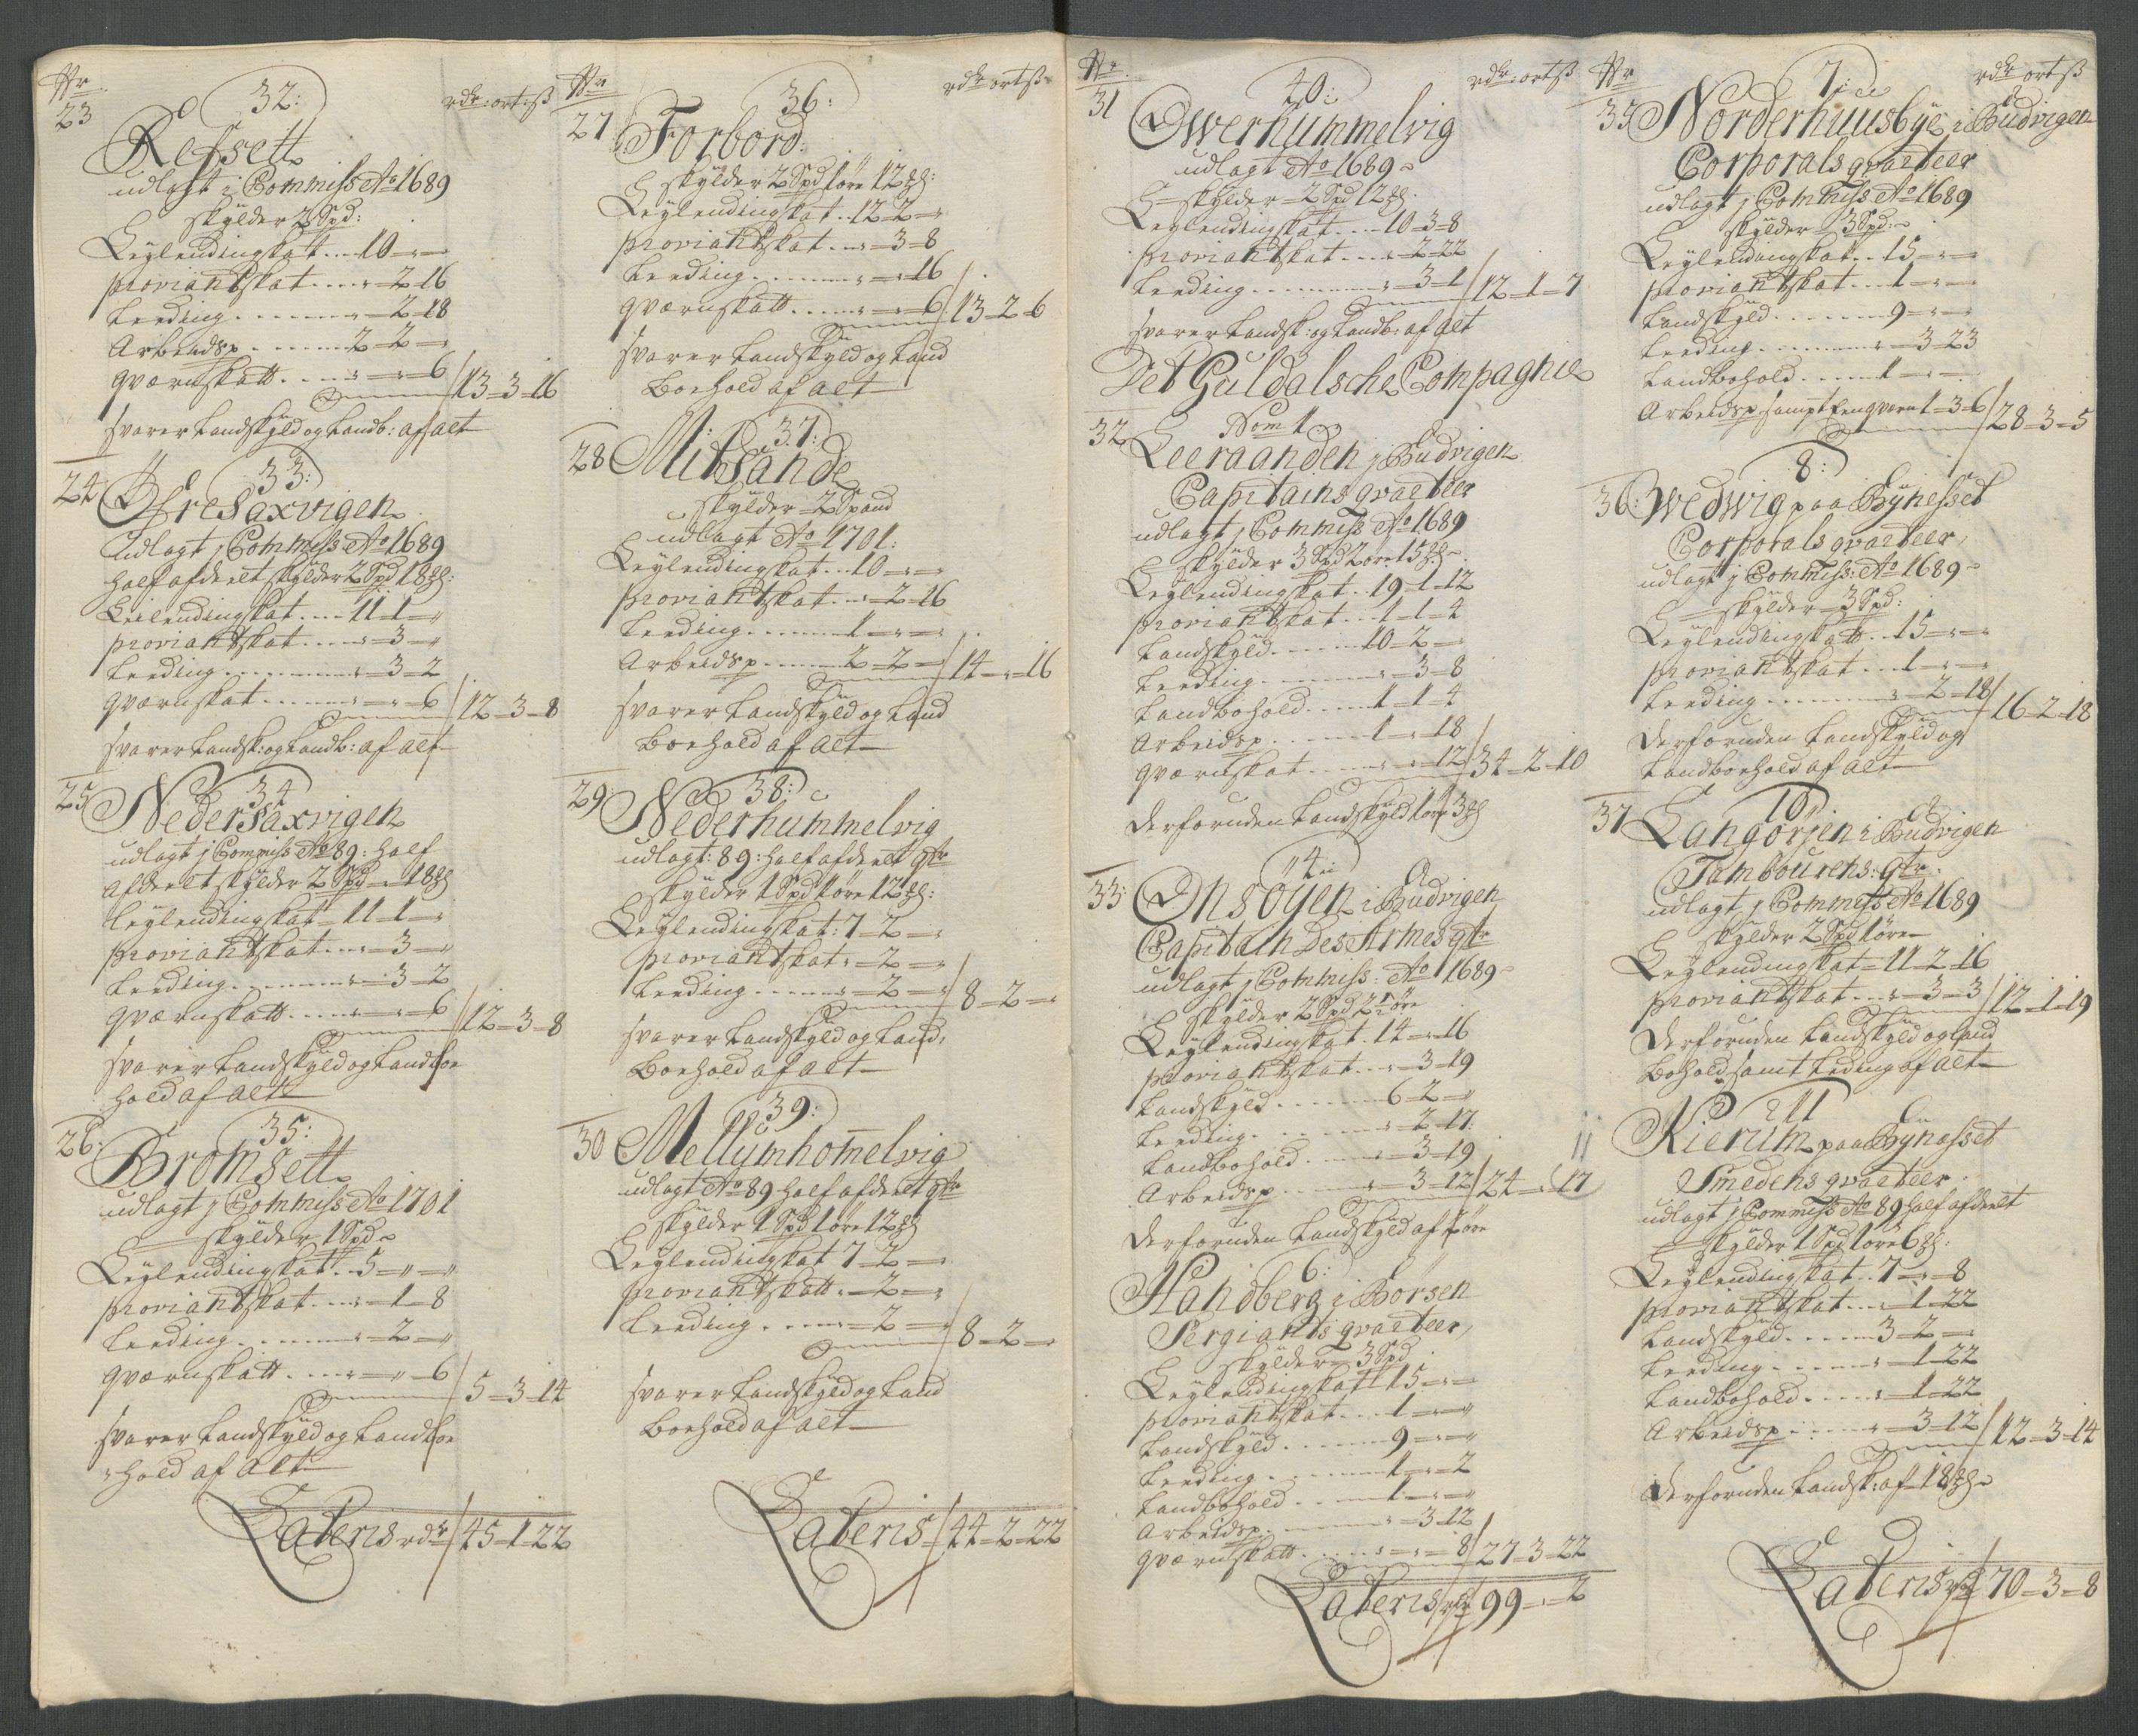 Nr
23
32:
rdr: ort: ß
Refsett
udlagt i Commiss Ao 1689
skylder 2 Spd:
Leylendingskatt ... 10 - " -
proviantskat .... " - 2 - 16
Leeding ........ " - 2 - 18
Arbeidsp ...... 2 - 2 -
qværnskatt .... " - " - 6 / 13 - 3 - 16
svarer Landskyld og Landb: af alt
24
33:
Øfre Saxvigen
udlagt j Commiss Ao 1689
half afdeelt skylder 2 Spd 18 ß:
Leilendingskat .... 11 - 1 - "
proviantskat ..... " - 3 - "
Leeding ......... " - 3 - 2
qværnskat ...... " - " - 6 / 12 - 3 - 8
svarer Landsk: og Landb: af alt
25
34
Neder Saxvigen
udlagt j Commiss Ao 89: half
Afdeelt skylder 2 Spd - 18 ß
Leylendingskat 11 - 1 - "
proviantskat .... " - 3 - "
Leeding ........ " - 3 - 2
qværnskatt ..... " - " - 6 / 12 - 3 - 8
svarer Landskyld og Landboe
hold af alt
26:
35:
Bromsett
udlagt j Commiss Ao 1701
skylder 1 Spd
Leylendingskat .. 5 - " - "
proviantskat .... " - 1 - 8
Leeding ........ " - 2 - "
qværnskatt .... " - " - 6 / 5 - 3 - 14
svarer Landskyld og Landboe
hold af alt
Lateris rdr / 45 - 1 - 22
Nr
27
36:
rdr ort ß
Forbord:
skylder 2 Spd 1 öre 12 ß:
Leylendingskat .. 12 - 2 - "
proviantskat .... " - 3 - 8
Leeding ......... " - " - 16
qværnskatt ..... " - " - 6 / 13 - 2 - 6
svarer Landskyld og Land
Boehold af alt
28
37:
Mitsande
skylder 2 Spand
udlagt Ao 1701:
Leylendingskat .. 10 - " - "
proviantskat .. " - 2 - 16
Leeding ........ 1 - " - "
Arbeidsp ...... 2 - 2 - " / 14 - " - 16
svarer Landskyld og Land
Boehold af alt
29:
38:
Nederhummelvig
udlagt: 89: half afdeelt qtr
skylder 1 Spd 1 öre 12 ß:
Leylendingskat: 7 - 2 - "
proviantskat " - 2 - "
Leeding ....... " - 2 - " / 8 - 2 - "
svarer Landskyld og Land,
Boehold af alt
30
39:
Mellumhommelvig
udlagt Ao 89 half afdeelt qtr
skylder 1 Spd 1 öre 12 ß
Leylendingskat 7 - 2 - "
proviantskatt " - 2 - "
Leeding ...... " - 2 - " / 8 - 2 - "
svarer Landskyld og Land
Boehold af alt
Lateris / 44 - 2 - 22
Nr
31
40:
rdr: ort ß
Owerhummelvig
udlagt Ao 1689
skylder 2 Spd 12 ß
Leylendingskatt .... 10 - 3 - 8
proviantskat .... " - 2 - 22
Leeding ......... " - 3 - 1 / 12 - 1 - 7
svarer Landsk: og Landb: af alt
Det Guldalsche Compagnie
32
Nom 1
Leeraanden j Budvigen
Capitains qvarteer
udlagt j Commiss Ao 1689
skylder 3 Spd 2 öre 15 ß
Leylendingskat . 19 - 1 - 12
proviantskat .... 1 - 1 - 4
Landskyld ...... 10 - 2 - "
Leeding ........ " - 3 - 8
Landbohold ..... 1 - 1 - 4
Arbeidsp ....... 1 - " - 18
qværnskat ...... " - " - 12 / 34 - 2 - 10
Derforuden Landskyld 1 öre 3 ß
33:
"4"
Onsöyen i Budvigen
Capitain Des Armes qtr
udlagt j Commiss: Ao 1689
skylder 2 Spd 2 1/2 öre
Leylendingskat . 14 - " - 16
proviantskat ... " - 3 - 19
Landskyld ....... 6 - 2 - "
Leeding ........ " - 2 - 17:
Landbohold ..... " - 3 - 19
Arbeidsp ....... " - 3 - 12 / 24 - " - 17
Derforuden Landskyld af 1 öre
6:
Handberg i Börsen
Sergiants qvarteer,
skylder 3 Spd
Leylendingskat 15 - " - "
proviantskat ... 1 - " - "
Landskyld ...... 9 - " - "
Leeding ........ 1 - " - 2
Landbohold .... 1 - " - "
Arbeidsp ....... " - 3 - 12
qværnskatt ..... " - " - 8 / 27 - 3 - 22
Lateris rdr 99 - " - 2
Nr
35
7:
rdr ort ß
Norderhuusbye i Budvigen
Corporals qvarteer
udlagt j Commiss Ao 1689
skylder 3 Spd:
Leylendingskat .. 15 - " - "
proviantskat .... 1 - " - "
Landskyld ....... 9 - " - "
Leeding ........ " - 3 - 23
Landbohold ..... 1 - " - "
Arbeidsp sampt Eenqvern 1 - 3 - 6 / 28 - 3 - 5
36:
8:
Wedwig paa Bynesset
Corporals qvarteer,
udlagt j Commiss: Ao 1689
skylder 3 Spd:
Leylendingskatt .. 15 - " - "
proviantskat .... 1 - " - "
Leeding ........ " - 2 - 18 / 16 - 2 - 18
Derforuden Landskyld og
Landboehold af alt
37
10,
Langörjen i Budvigen
Tambourens: qtr:
udlagt j Commiss Ao 1689
skylder 2 Spd 1 öre
Leylendingskat 11 - 2 - 16
proviantskat .... " - 3 - 3 / 12 - 1 - 19
Derforuden Landskyld og Land
Bohold samt Leding af alt
11
Kierum paa Bynesset
Smedens qvarteer
udlagt j Commiss Ao 89 half afdeelt
skylder 1 Spd 1 öre 6 ß:
Leylendingskat .. 7 - " - 8
proviantskat .... " - 1 - 22
Landskyld ...... 3 - 2 - "
Leeding ........ " - 1 - 22
Landbohold ..... " - 1 - 22
Arbeidsp ....... " - 3 - 12 / 12 - 3 - 14
Derforuden Landsk: af 18 ß
Lateris rdr 70 - 3 - 8